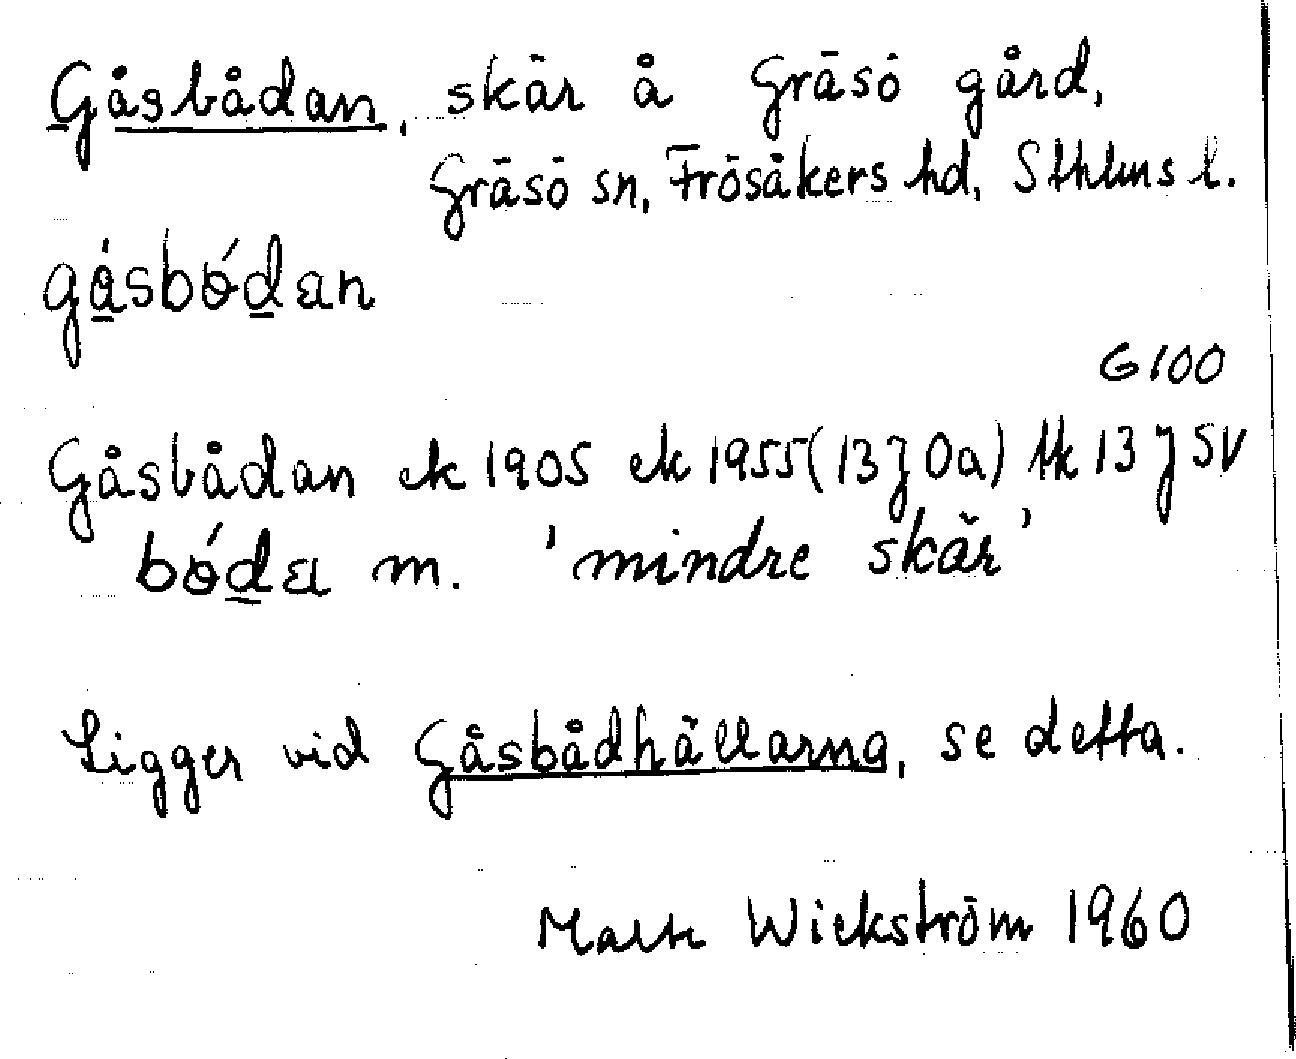 Gåsbådan, skär å Gräsö gård,
Gräsö sn, Frösåkers hd, Sthlms l.
gåsbódan
G 100
Gåsbådan ek 1905 ek 1955 (13J0a) tk 13J SV
bóda m. 'mindre skär'
Ligger vid Gåsbådhällarna, se detta.
Malte Wickström 1960